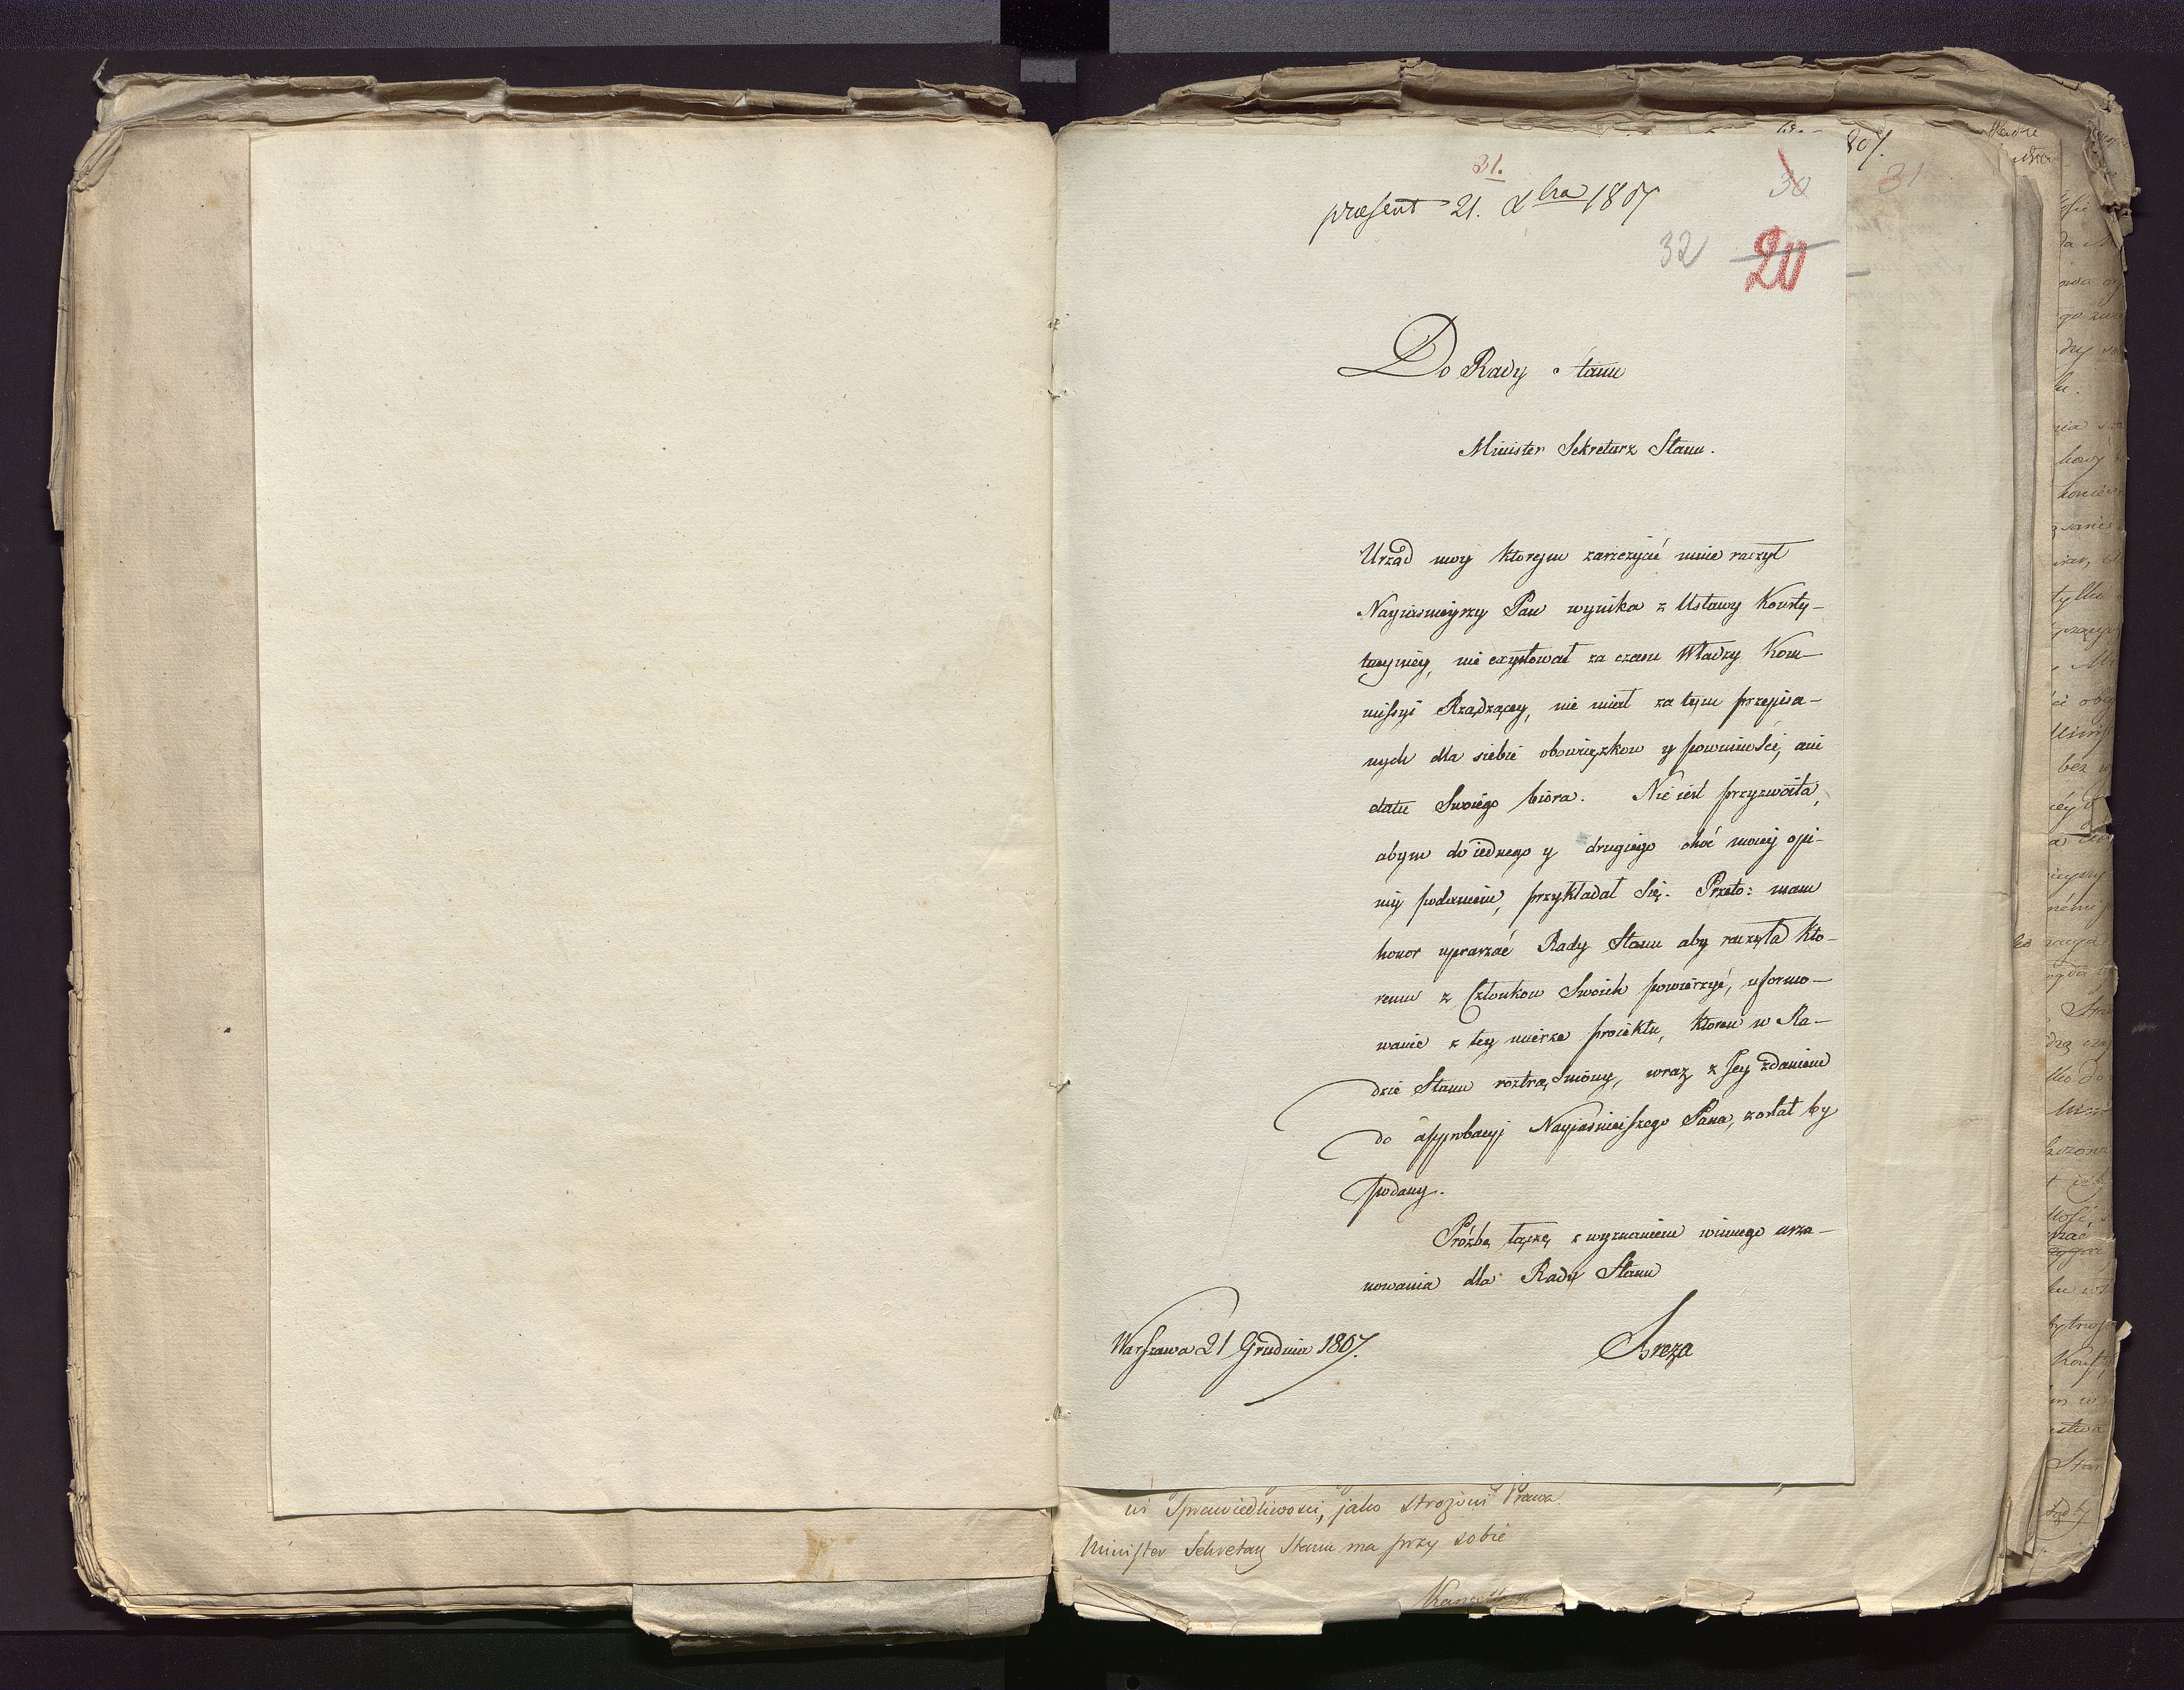 31.
præsent 21. Xbra 1807
30
31
807.
32 20
Do Rady Stanu
Minister Sekretarz Stanu.
Urząd moy ktorym zaszczycić mnie raczył
Nayiasnieyszy Pan wynika z Ustawy Konsty-
tucyiney, nie exystował za czasu Władzy Kom-
missyi Rządzącey, nie miał za tym przepisa-
nych dla siebie obowiązkow y powinności, ani
etatu Swoiego biora. Nie iest przyzwoita,
abym do iednego y drugiego choć moiey opi-
nii podaniem, przykładał Się. Przeto: mam
honor upraszać Rady Stanu aby raczyła kto-
remu z Członkow Swoich powierzyć, uformo-
wanie z tey mierze proiektu, ktoren w Ra-
dzie Stanu roztrząśniony, wraz z Jey zdaniem
do approbacyi Nayiasnieiszego Pana, został by
podany.
Próźbę łączę z wyznaniem winnego usza-
nowania dla Rady Stanu
Warszawa 21 Grudnia 1807.
Breza
Sprawiedliwosci, jako Stróżowi Prawa.
Minister Sekretarz Stanu ma przy sobie